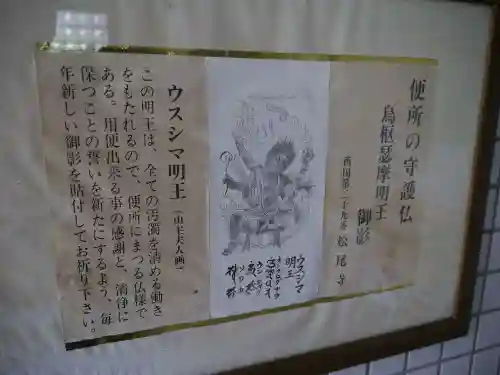 便所の守護仏
烏枢瑟摩明王
御影
西国第二十九番 松尾寺
ウスシマ
明王
ウスシマ明王（山主夫人画）
この明王は、全ての汚濁を清める働き
をもたれるので、便所にまつる仏様で
ある。用便出来る事の感謝と、清浄に
保つことの誓いを新たにするよう、毎
年新しい御影を貼付してお祈り下さい。